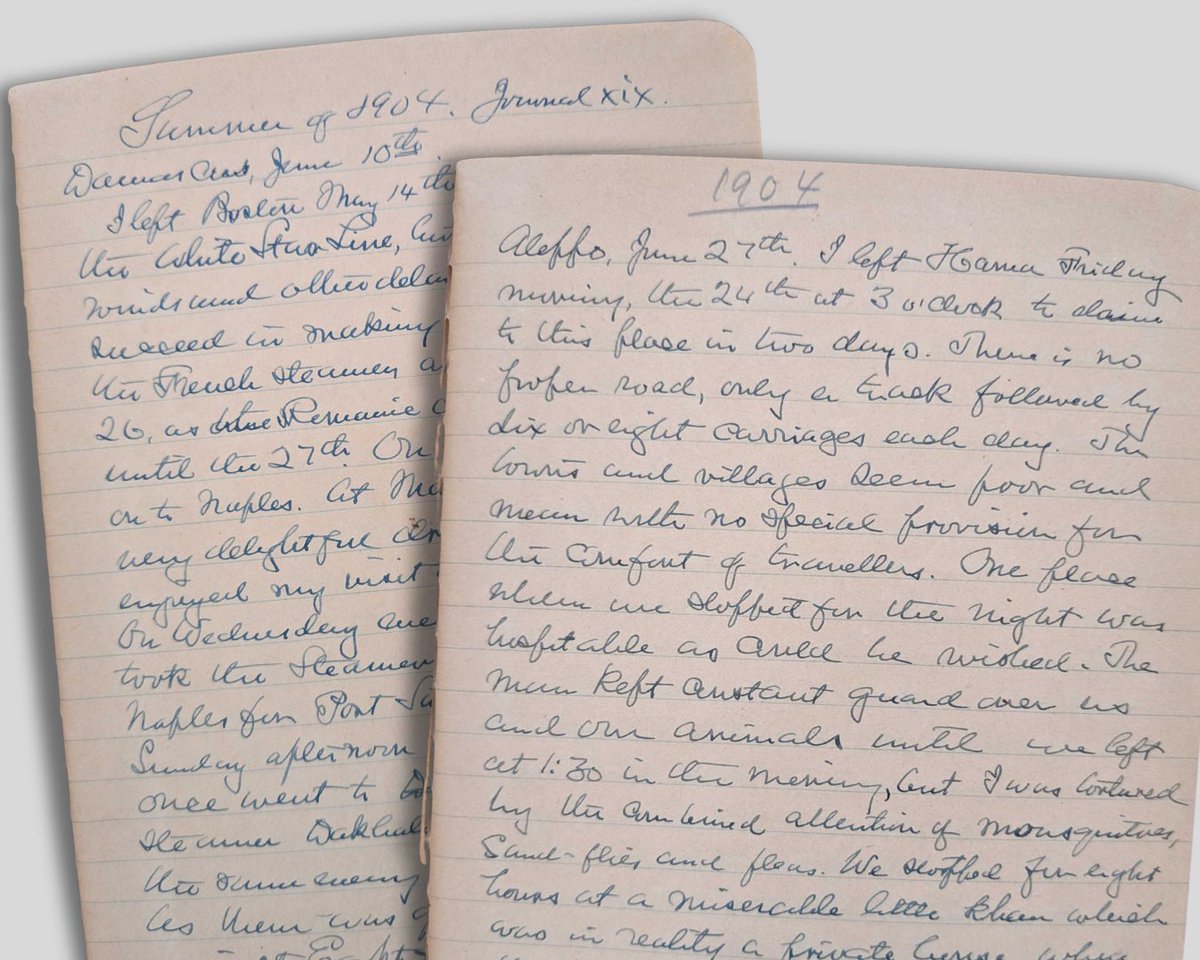 Summer of 1904. Journal xix.
Damascus, June 10th.
I left Boston May 14th
the White Star Line,
winds and other
succeed in making
the French steamer
26, as the
until the 27th. On
on to Naples. At
very delightful
enjoyed my visit
On Wednesday
took the steamer
Naples for Port
Sunday afternoon
once went to
steamer
the same
As there was
1904
Aleppo, June 27th. I left Hama Friday
morning, the 24th at 3 o'clock to
to this place in two days. There is no
proper road, only a track followed by
six or eight carriages each day. The
towns and villages seem poor and
mean with no special provision for
the comfort of travellers. One place
where we stopped for the night was
hospitable as could be wished. The
man kept constant guard over us
and our animals until we left
at 1:30 in the morning, but I was tortured
by the combined attention of mosquitoes,
sand-flies and fleas. We stopped for eight
hours at a miserable little khan which
was in reality a private house, where